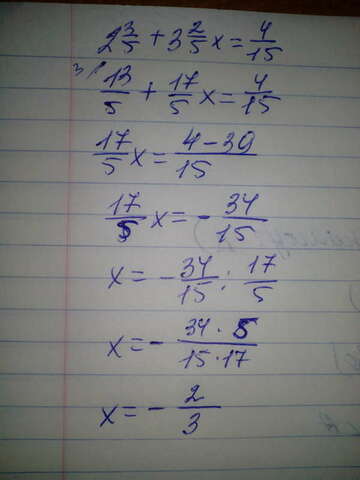 2 3/5 + 3 2/5 x = 4/15
3/ 13/5 + 17/5 x = 4/15
17/5 x = (4-39)/15
17/5 x = - 34/15
x = - 34/15 : 17/5
x = - (34 · 5)/(15 · 17)
x = - 2/3